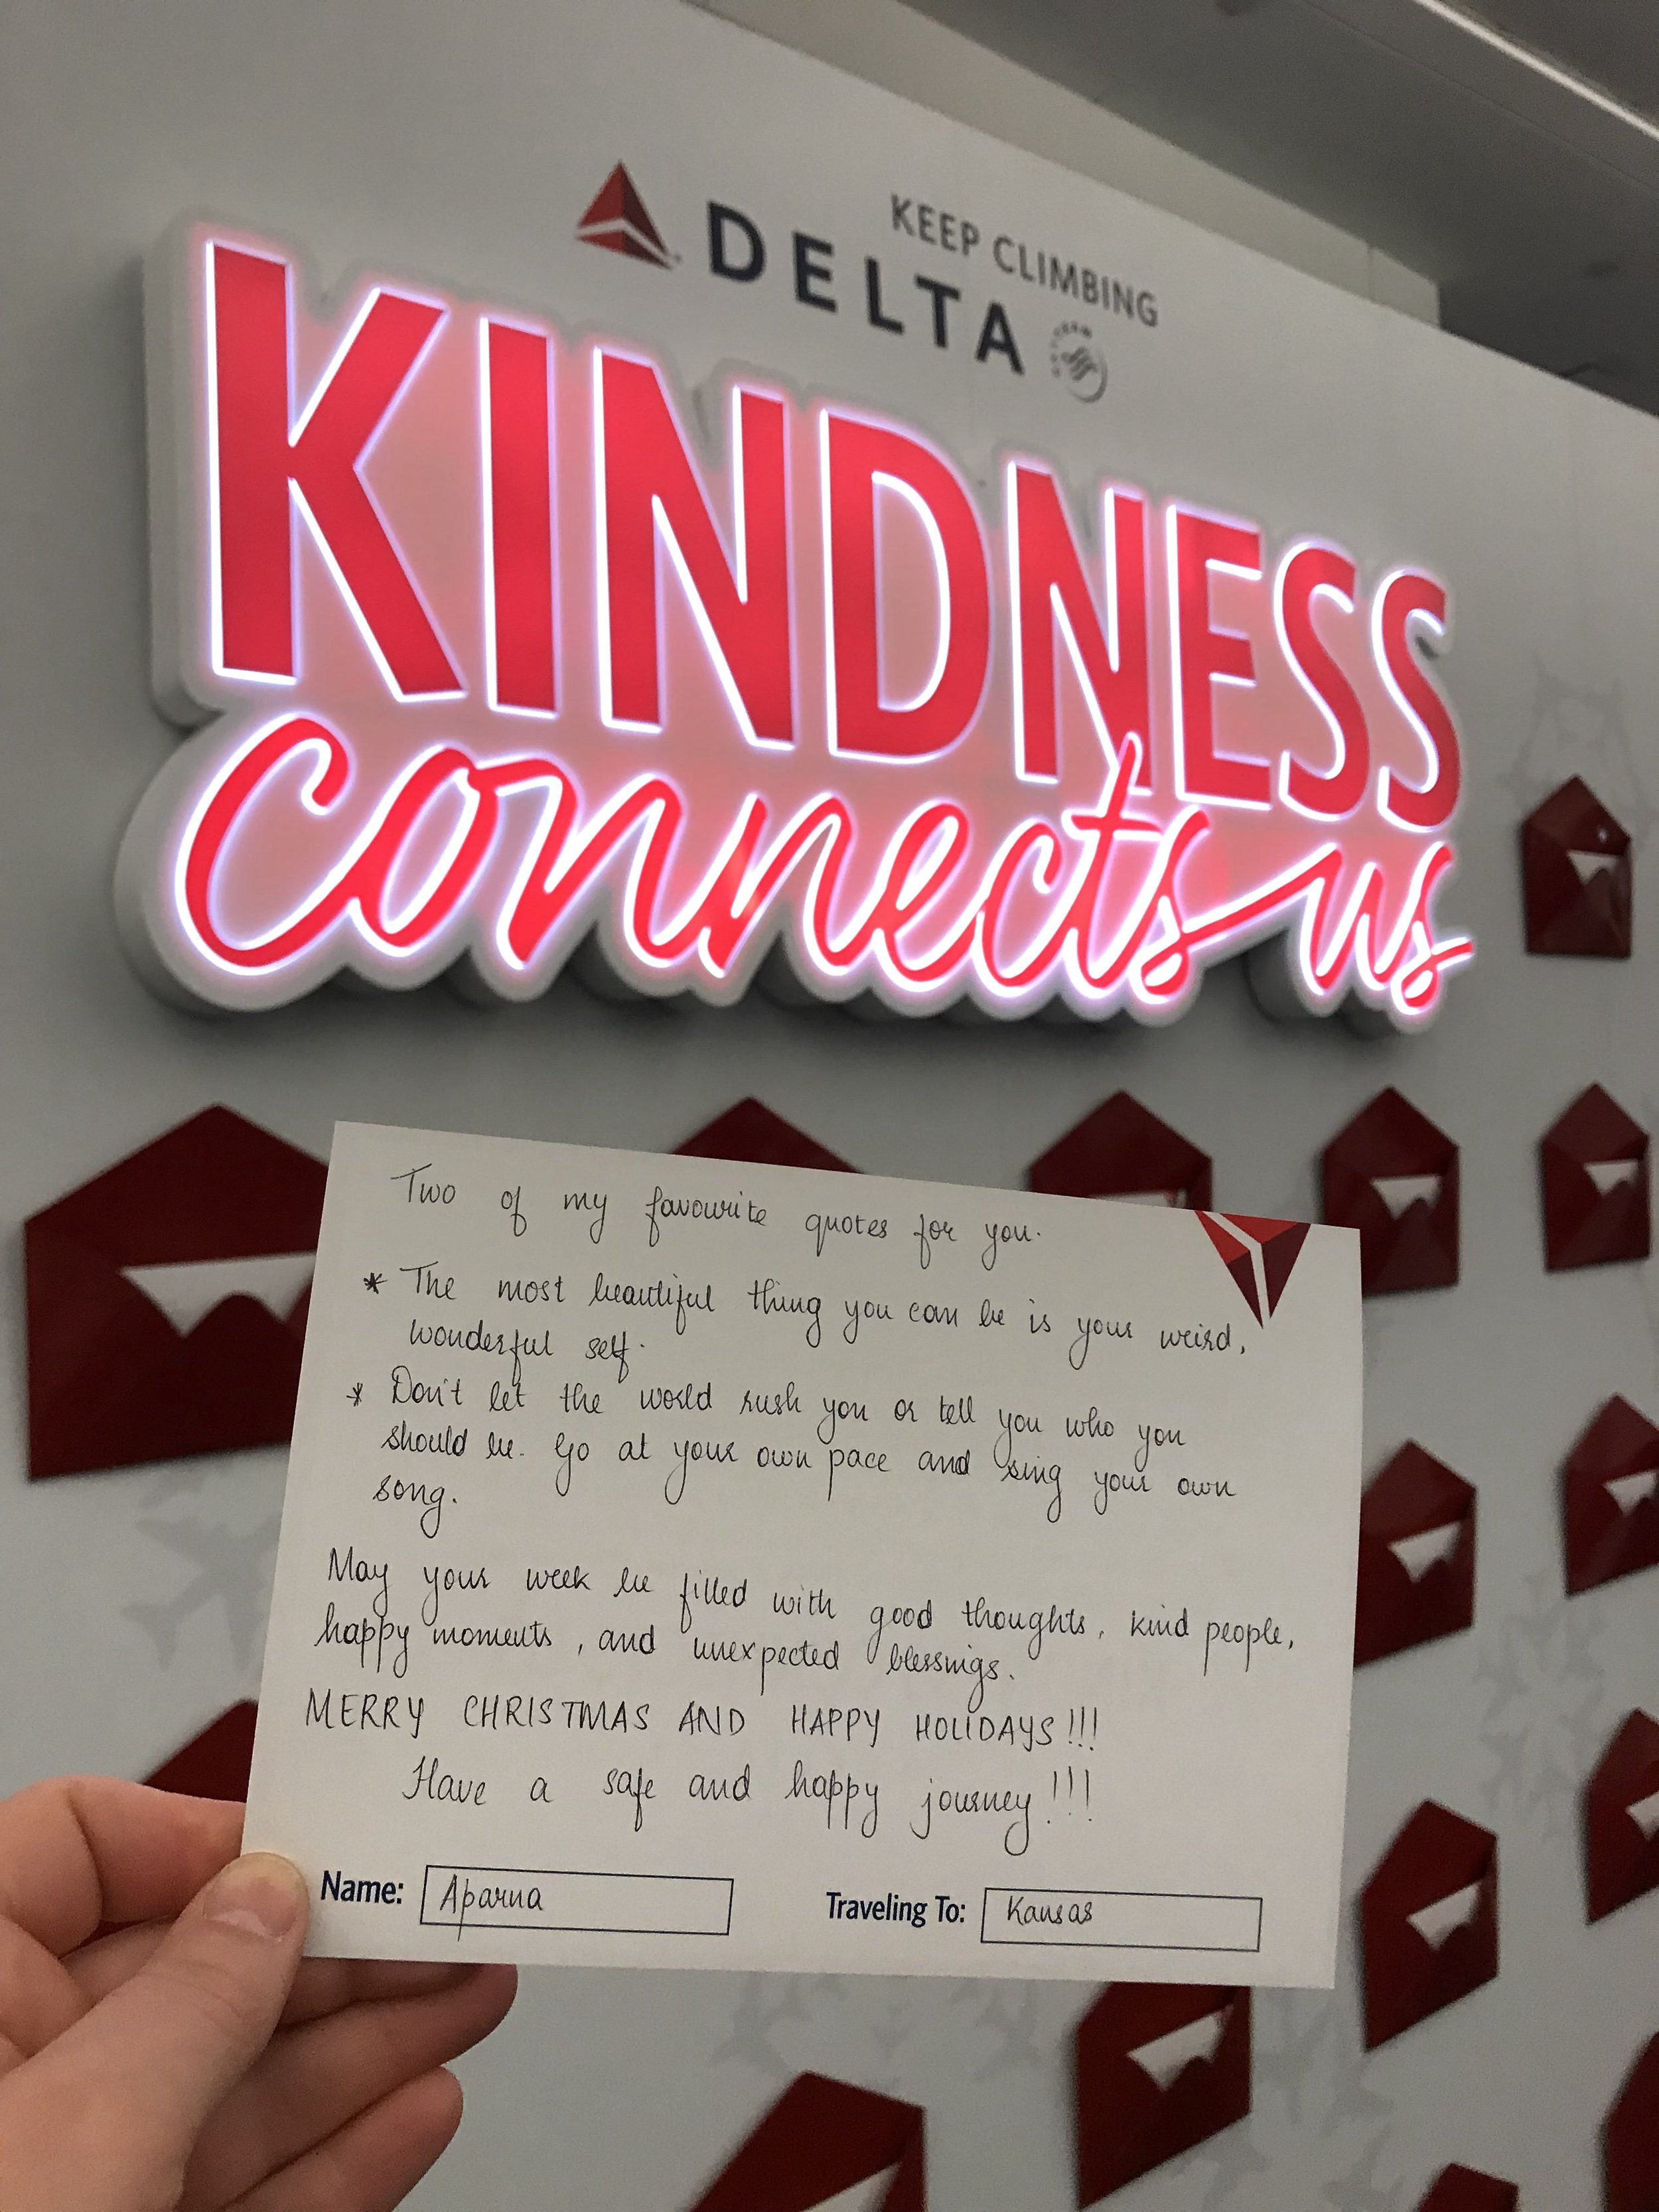 KEEP CLIMBING
DELTA
KINDNESS
connects us
Two of my favourite quotes for you.
* The most beautiful thing you can be is your weird,
wonderful self.
* Don't let the world rush you or tell you who you
should be. Go at your own pace and sing your own
song.
May your week be filled with good thoughts, kind people,
happy moments, and unexpected blessings.
MERRY CHRISTMAS AND HAPPY HOLIDAYS!!!
Have a safe and happy journey!!!
Name: Aparna
Traveling To: Kansas